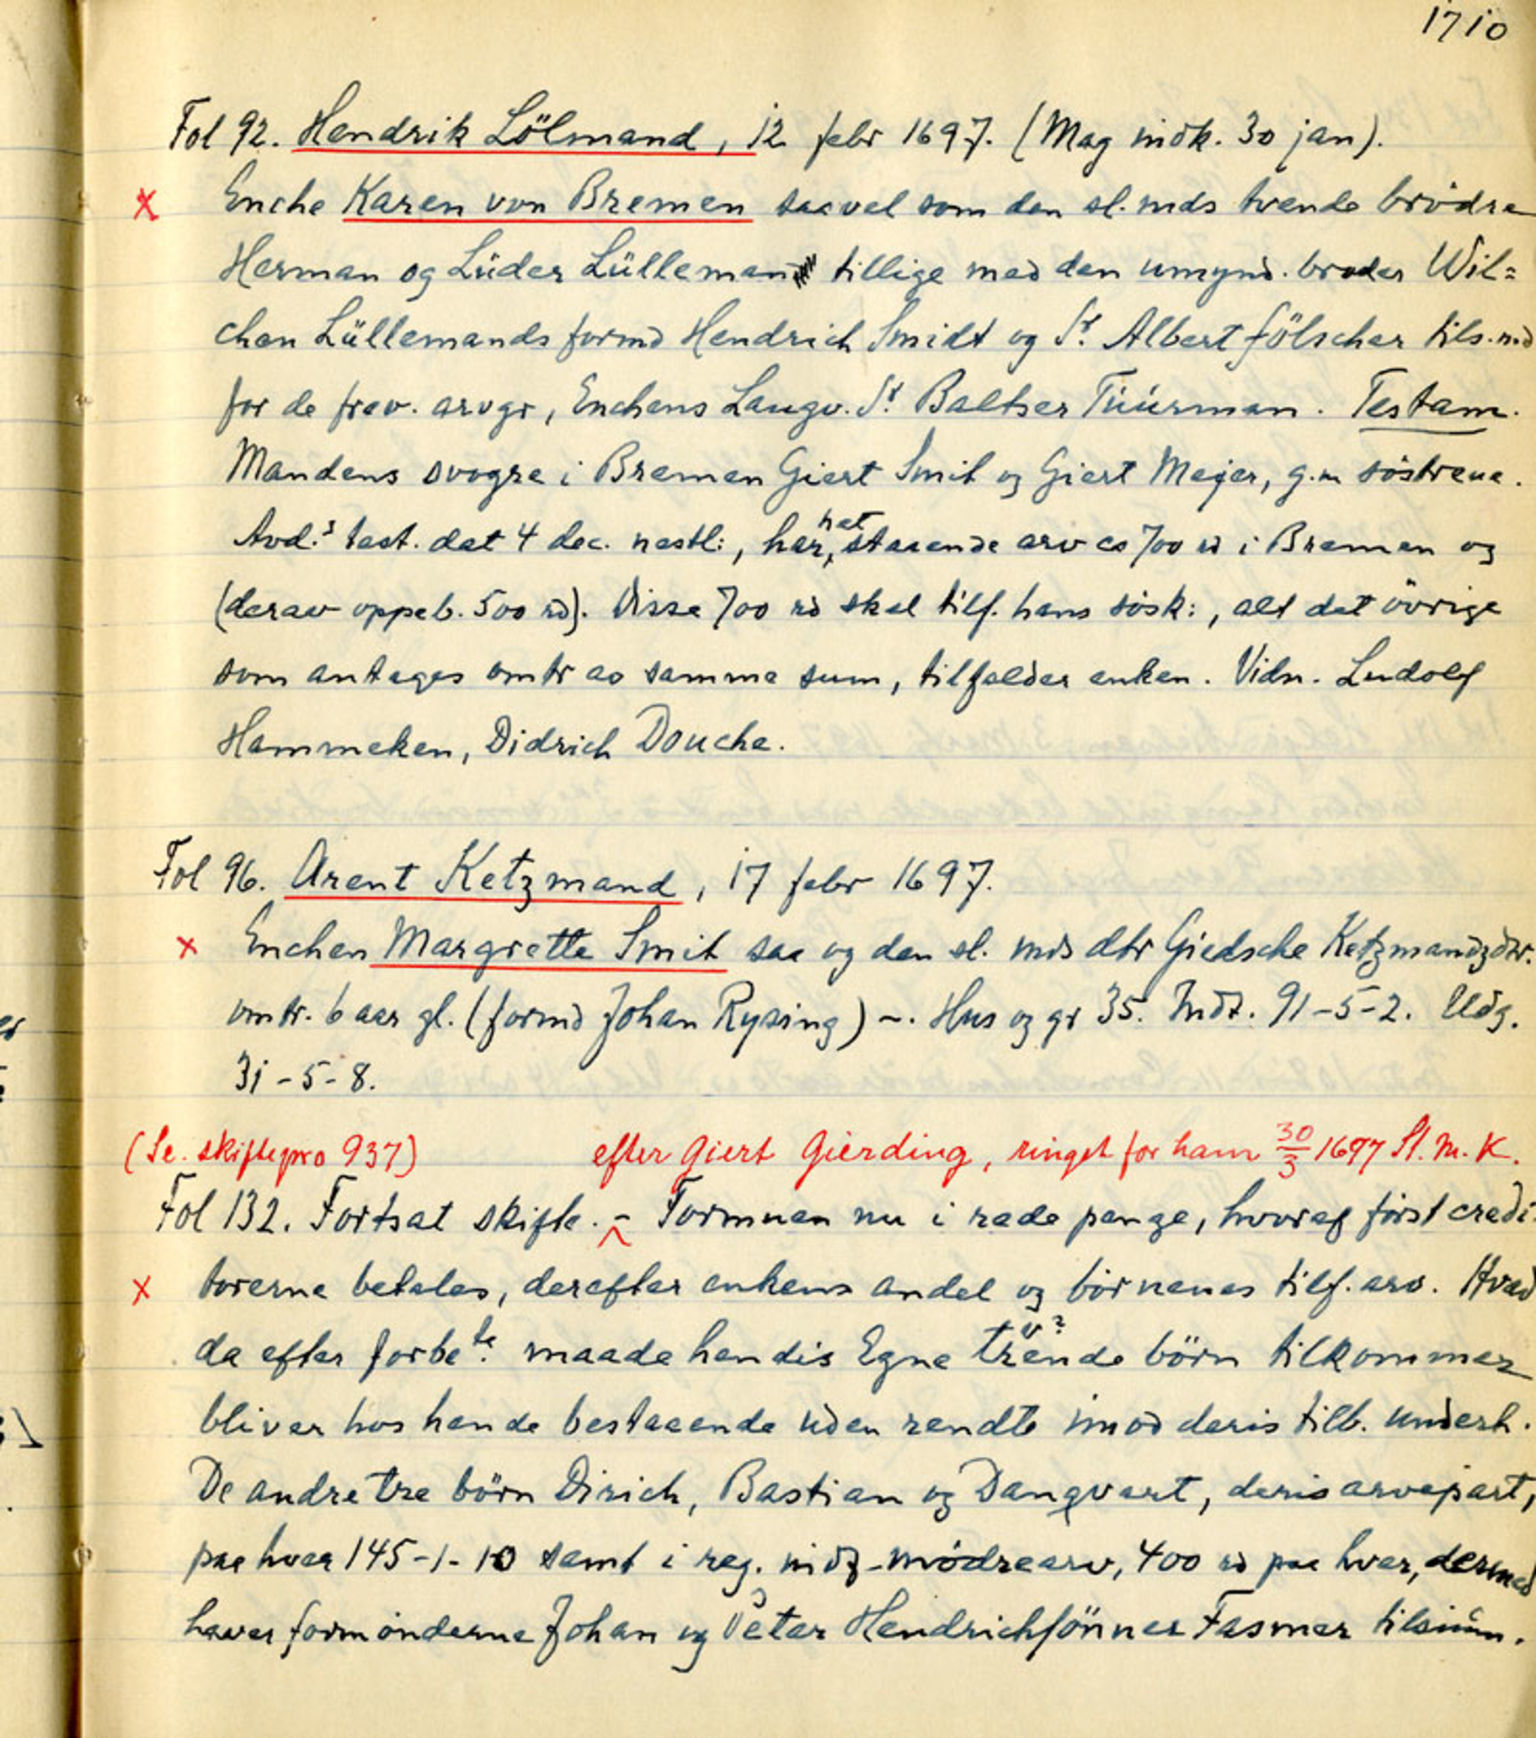 1710
Fol 92. Hendrik Lölmand, 12 febr 1697. (Mag indk. 30 jan).
x Enche Karen von Bremen saavel som den sl. mds tvende brödre
Herman og Lüder Lülleman tillige med den umynd. broder Wil=
chen Lüllemands formd Hendrich Smidt og Sr. Albert fölscher tils.md
for de frav. arvgr, Enchens Laugv. Sr. Baltser Tüürman. Testam.
Mandens svogre i Bremen Giert Smit og Giert Mejer, g.m söstrene.
Avd.s test. dat 4 dec. nestl:, har hat staaende arv ca 700 rd i Bremen og
(derav oppeb. 500 rd). Disse 700 rd skal tilf. hans sösk:, alt det övrige
som antages omtr ao samme sum, tilfalder enken. Vidn. Ludolf
Hammeken, Didrich Douche.
Fol 96. Arent Ketzmand, 17 febr 1697.
x Enchen Margrette Smit saa og den sl. mds dtr Giedsche Ketzmandzdtr.
omtr. 6 aar gl. (formd Johan Rysing) ~. Hus og gr 35. Indt. 91-5-2. Udg.
31-5-8.
(Se. skiftepro 937) efter Giert Gierding, ringet for ham 30/3 1697 St. M. K.
Fol 132. Fortsat skifte. - Formuen nu i rede penge, hvoraf först credi
x torerne betales, derefter enkens andel og börnenes tilf. arv. Hvad
da efter forbete. maade hendis Egne trende v? börn tilkommer
bliver hos hende bestaaende uden rendte imod deris tilb. underh.
De andre tre börn Dirich, Bastian og Danqvart, deris arvepart,
paa hver 145-1-10 samt i reg. indf mödrearv, 400 rd paa hver, dermed
haver formönderne Johan og Peter Hendrichsönner Fasmer tilsiun.